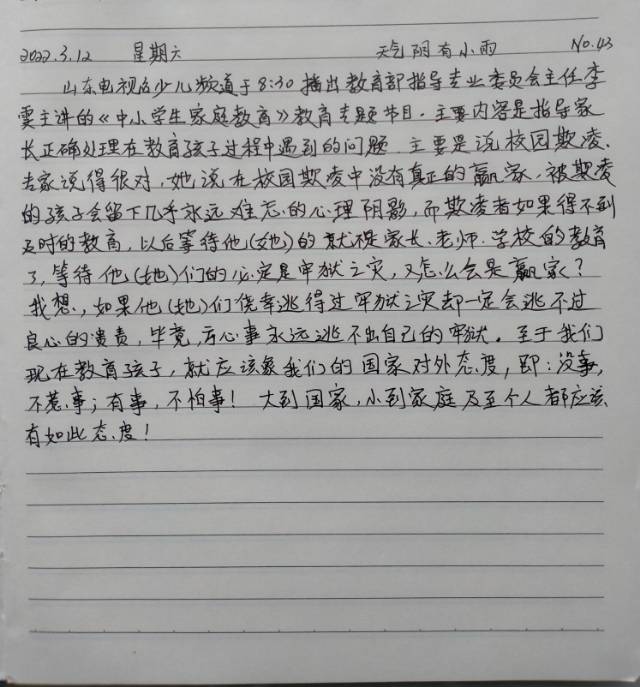 2022.3.12 星期六 天气阴有小雨 No.43
山东电视台少儿频道于8:30播出教育部指导专业委员会主任李
雯主讲的《中小学生家庭教育》教育专题节目.主要内容是指导家
长正确处理在教育孩子过程中遇到的问题.主要是说校园欺凌.
专家说得很对,她说在校园欺凌中没有真正的赢家,被欺凌
的孩子会留下几乎永远难忘的心理阴影,而欺凌者如果得不到
及时的教育,以后等待他(她)的就不是家长.老师.学校的教育
了,等待他(她)们的必定是牢狱之灾,又怎么会是赢家?
我想,如果他(她)们侥幸逃得过牢狱之灾却一定会逃不过
良心的谴责,毕竟,亏心事永远逃不出自己的牢狱。至于我们
现在教育孩子,就应该象我们的国家对外态度,即:没事,
不惹事;有事,不怕事!大到国家,小到家庭及至个人都应该
有如此态度!